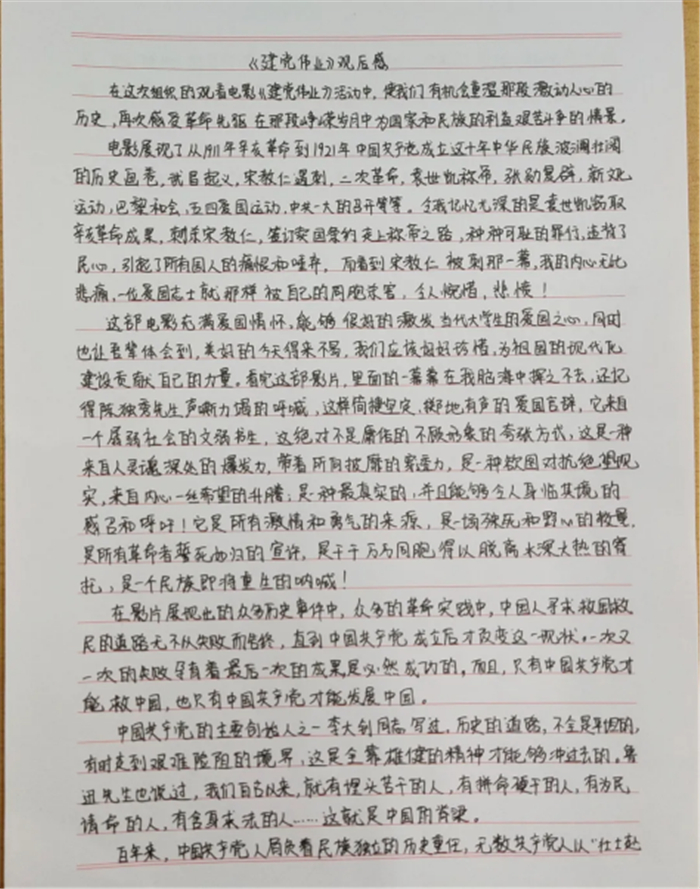 《建党伟业》观后感
在这次组织的观看电影《建党伟业》活动中，使我们有机会重温那段激动人心的
历史，再次感受革命先驱在那段峥嵘岁月中为国家和民族的利益艰苦斗争的情景。
电影展现了从1911年辛亥革命到1921年中国共产党成立这十年中华民族波澜壮阔
的历史画卷，武昌起义，宋教仁遇刺，二次革命，袁世凯称帝，张勋复辟，新文化
运动，巴黎和会，五四爱国运动，中共一大的召开等等。令我记忆尤深的是袁世凯窃取
辛亥革命成果，刺杀宋教仁，签订卖国条约走上称帝之路，种种可耻的罪行，违背了
民心，引起了所有国人的痛恨和唾弃，而看到宋教仁被刺那一幕，我的内心无比
悲痛，一位爱国志士就那样被自己的同胞杀害，令人惋惜，悲愤！
这部电影充满爱国情怀，能够很好的激发当代大学生的爱国之心，同时
也让吾辈体会到，美好的今天得来不易，我们应该好好珍惜，为祖国的现代化
建设贡献自己的力量。看完这部影片，里面的一幕幕在我脑海中挥之不去，还记
得陈独秀先生声嘶力竭的呼喊，这样简捷坚定，掷地有声的爱国言辞，它来自
一个孱弱社会的文弱书生，这绝对不是庸俗的不顾形象的夸张方式，这是一种
来自人灵魂深处的爆发力，带着所向披靡的穿透力，是一种欲图对抗绝望现
实，来自内心一丝希望的升腾；是一种最真实的，并且能够令人身临其境的
感召和呼吁！它是所有激情和勇气的来源，是一场殊死和野心的较量，
是所有革命者誓死如归的宣许，是千千万万同胞得以脱离水深火热的寄
托，是一个民族即将重生的呐喊！
在影片展现出的众多历史事件中，众多的革命实践中，中国人寻求救国救
民的道路无不从失败而告终，直到中国共产党成立后才改变这一现状。一次又
一次的失败孕育着最后一次的成果是必然成功的。而且，只有中国共产党才
能救中国，也只有中国共产党才能发展中国。
中国共产党的主要创始人之一李大钊同志写过，历史的道路，不全是平坦的，
有时走到艰难险阻的境界，这是全靠雄健的精神才能够冲过去的。鲁
迅先生也说过，我们自古以来，就有埋头苦干的人，有拼命硬干的人，有为民
请命的人，有舍身求法的人……这就是中国的脊梁。
百年来，中国共产党人肩负着民族独立的历史重任，无数共产党人以“壮士赴